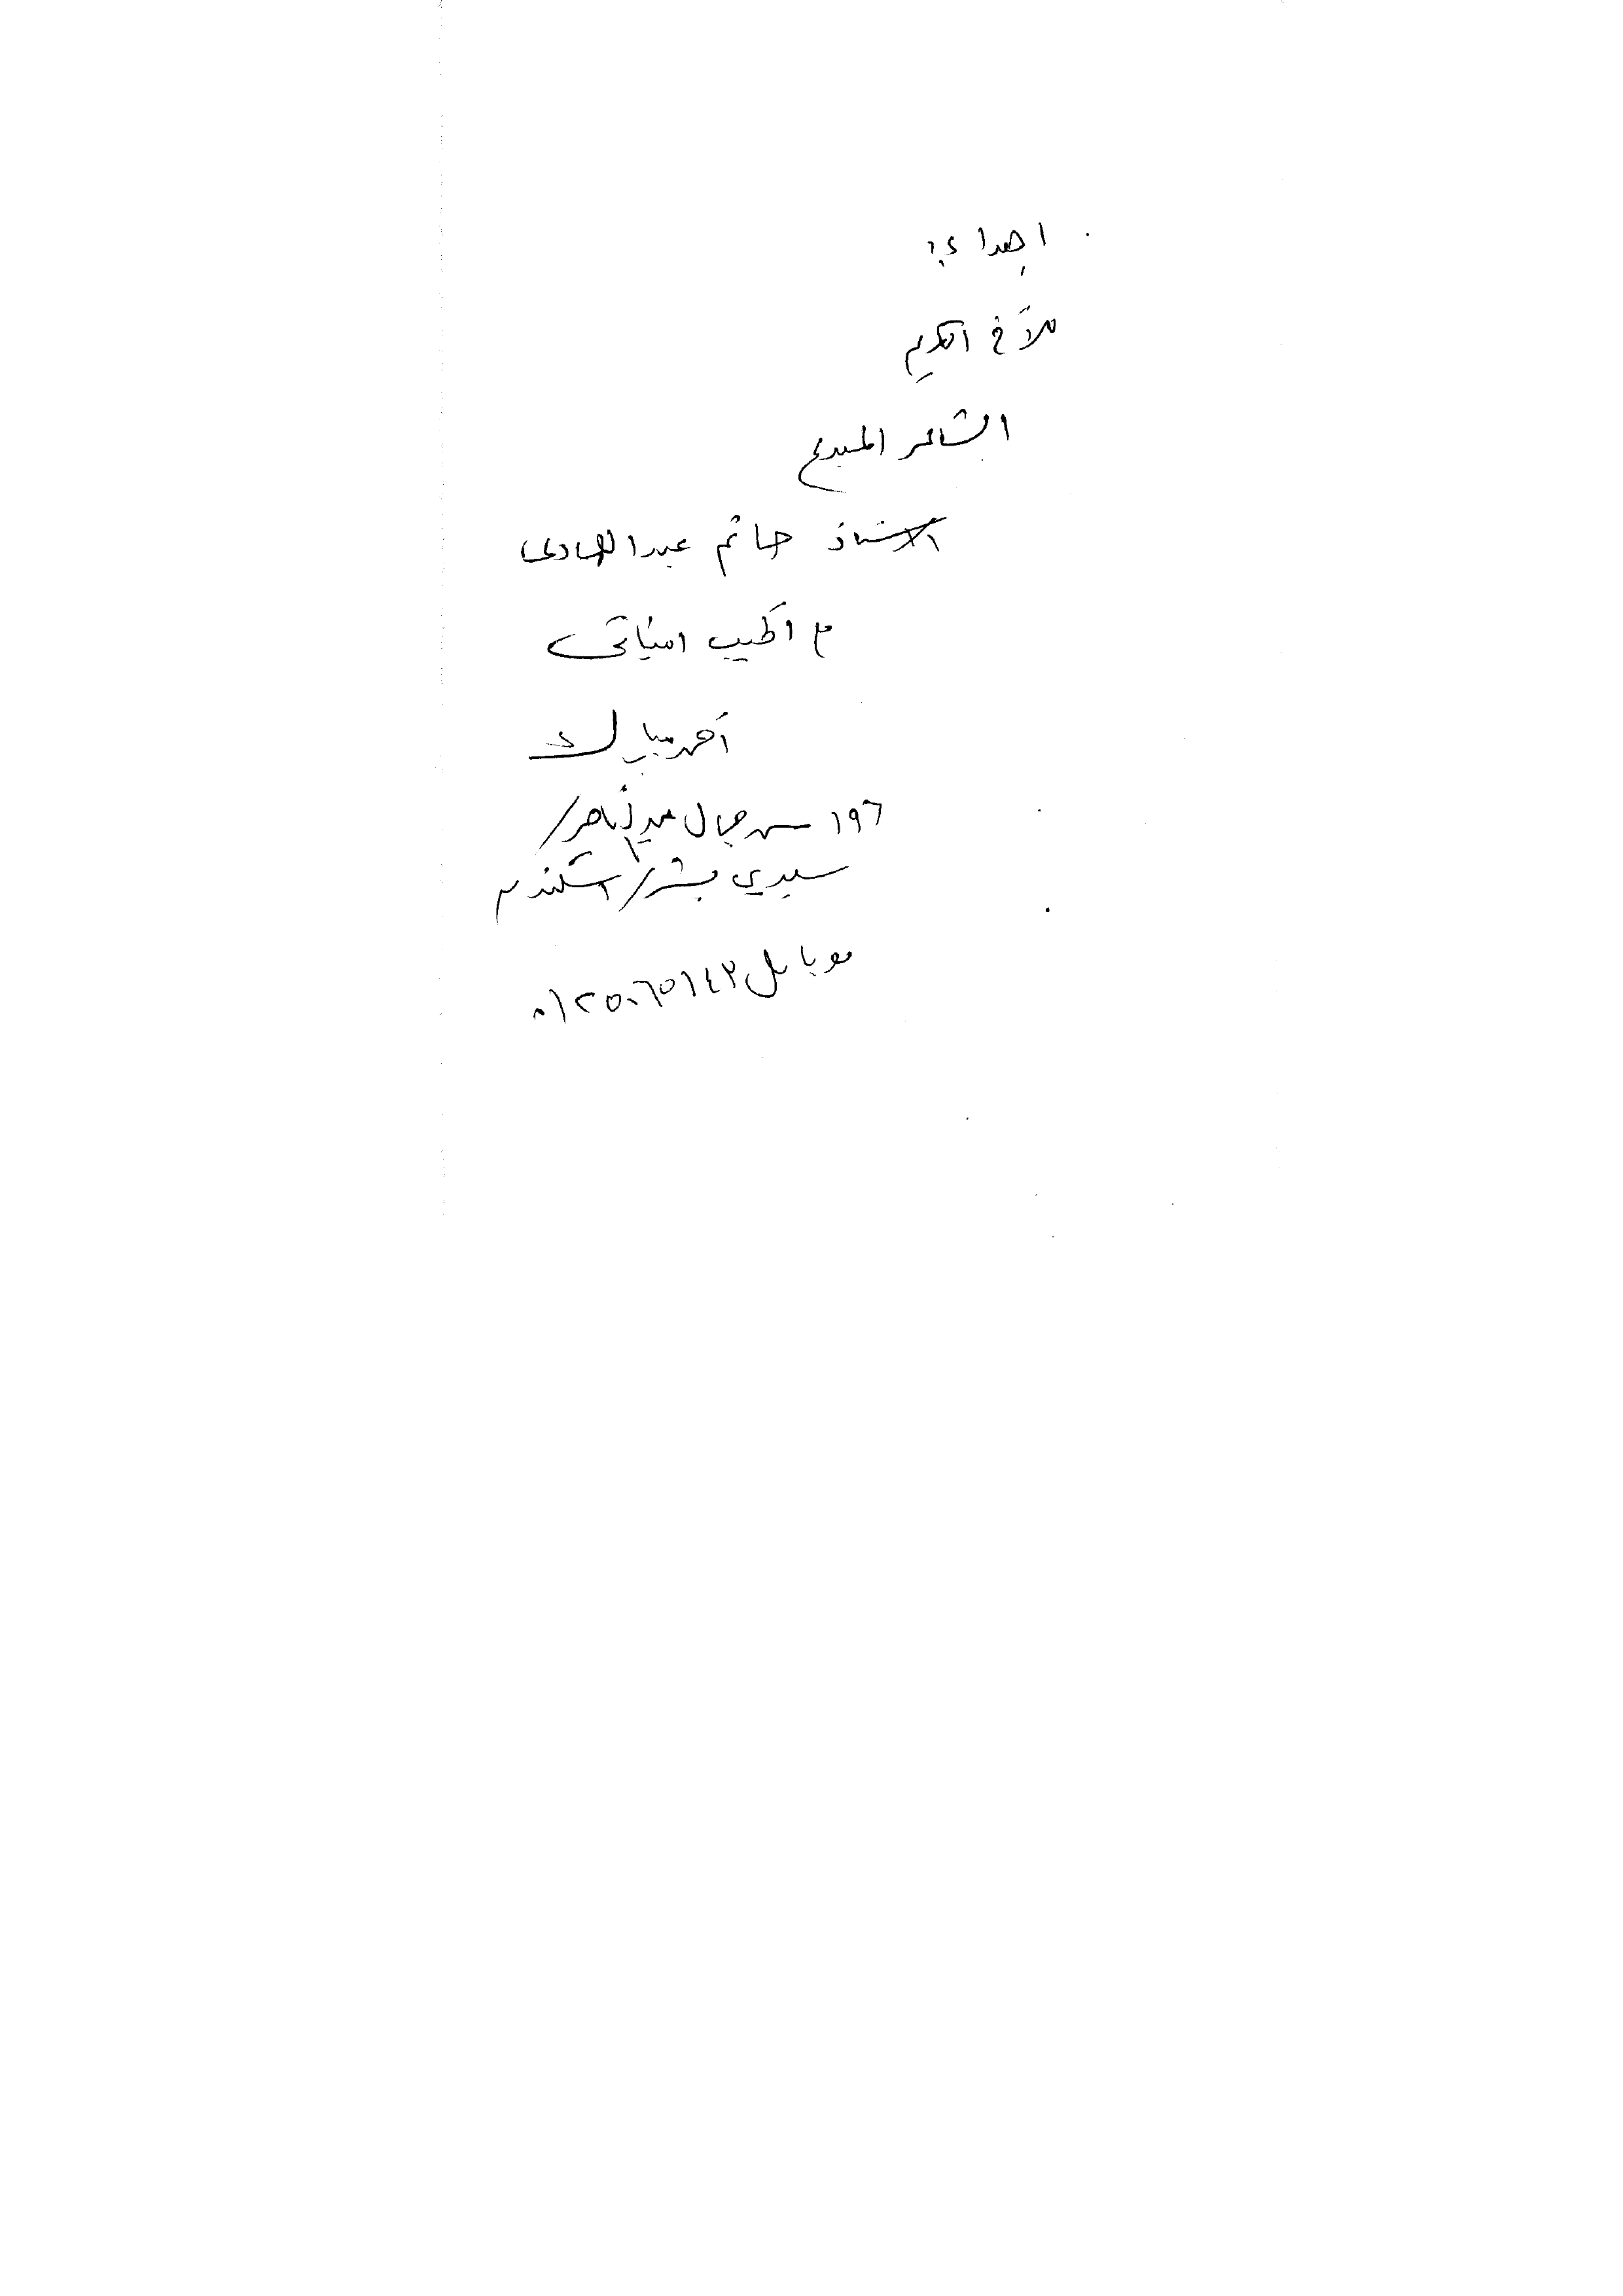 اهداء؛
للأخ الكريم
الشاعر المبدع
الأستاذ حاتم عبدالهادى
مع أطيب امنياتى
أحمد مبارك
١٩٦ ش جمال عبدالناصر/
سيدي بشر/ اسكندرية
موبايل ٠١٢٥٠٦٥١٤٣